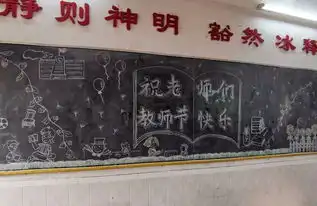 静则神明 豁然冰释
祝老师们
教师节快乐